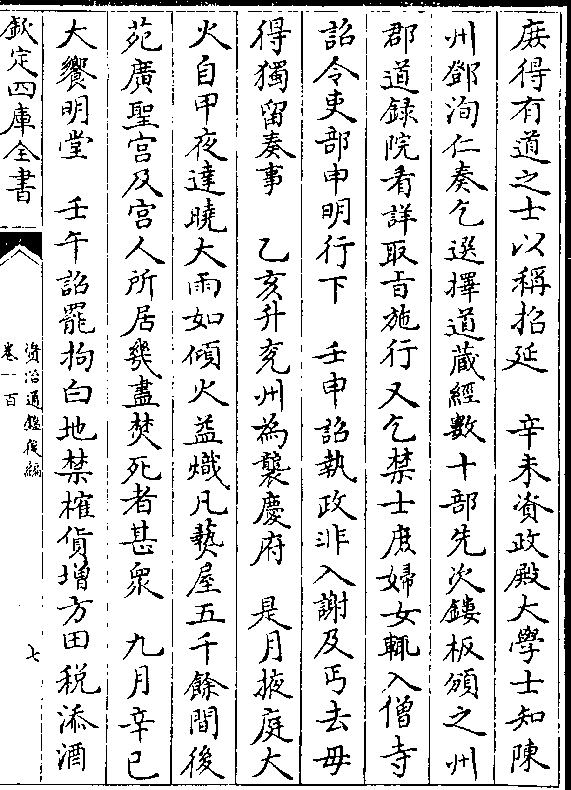 庶得有道之士以稱招延　辛未資政殿大學士知陳
州鄧洵仁奏乞選擇道藏經數十部先次鏤板頒之州
郡道録院看詳取旨施行又乞禁士庶婦女輒入僧寺
詔令吏部申明行下　壬申詔執政非入謝及丐去毋
得獨留奏事　乙亥升兖州為襲慶府　是月掖庭大
火自甲夜達曉大雨如傾火益熾凡爇屋五千餘間後
苑廣聖宫及宫人所居幾盡焚死者甚衆　九月辛巳
大饗明堂　壬午詔罷拘白地禁榷貨増方田税添酒
欽定四庫全書
資治通鑑後編
卷一百
七